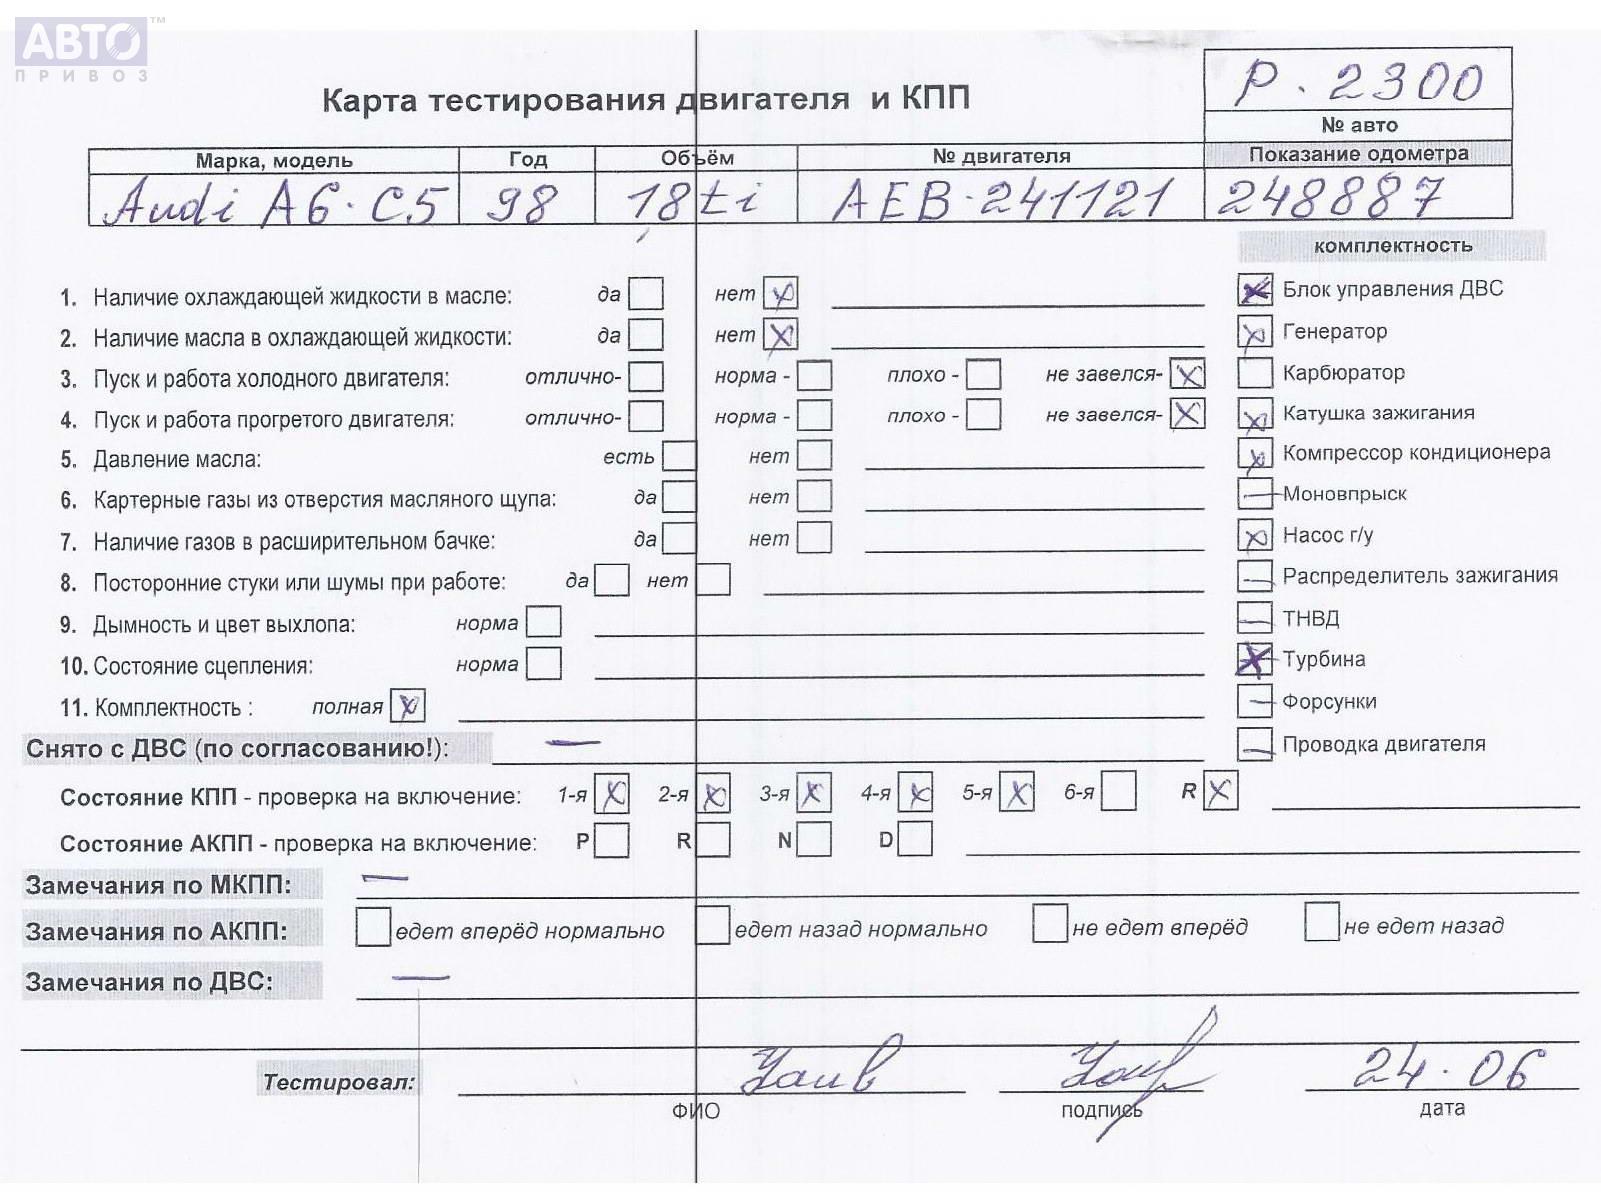 АВТО™
ПРИВОЗ
Карта тестирования двигателя и КПП
Р. 2300
№ авто
Марка, модель Год Объём № двигателя Показание одометра
Audi A6·C5 98 18ti AEB·241121 248887
комплектность
1. Наличие охлаждающей жидкости в масле: да нет
2. Наличие масла в охлаждающей жидкости: да нет
3. Пуск и работа холодного двигателя: отлично- норма - плохо - не завелся-
4. Пуск и работа прогретого двигателя: отлично- норма - плохо - не завелся-
5. Давление масла: есть нет
6. Картерные газы из отверстия масляного щупа: да нет
7. Наличие газов в расширительном бачке: да нет
8. Посторонние стуки или шумы при работе: да нет
9. Дымность и цвет выхлопа: норма
10. Состояние сцепления: норма
11. Комплектность : полная
Блок управления ДВС
Генератор
Карбюратор
Катушка зажигания
Компрессор кондиционера
Моновпрыск
Насос г/у
Распределитель зажигания
ТНВД
Турбина
Форсунки
Проводка двигателя
Снято с ДВС (по согласованию!):
Состояние КПП - проверка на включение: 1-я 2-я 3-я 4-я 5-я 6-я R
Состояние АКПП - проверка на включение: P R N D
Замечания по МКПП:
Замечания по АКПП: едет вперёд нормально едет назад нормально не едет вперёд не едет назад
Замечания по ДВС:
Тестировал: 24.06
ФИО подпись дата